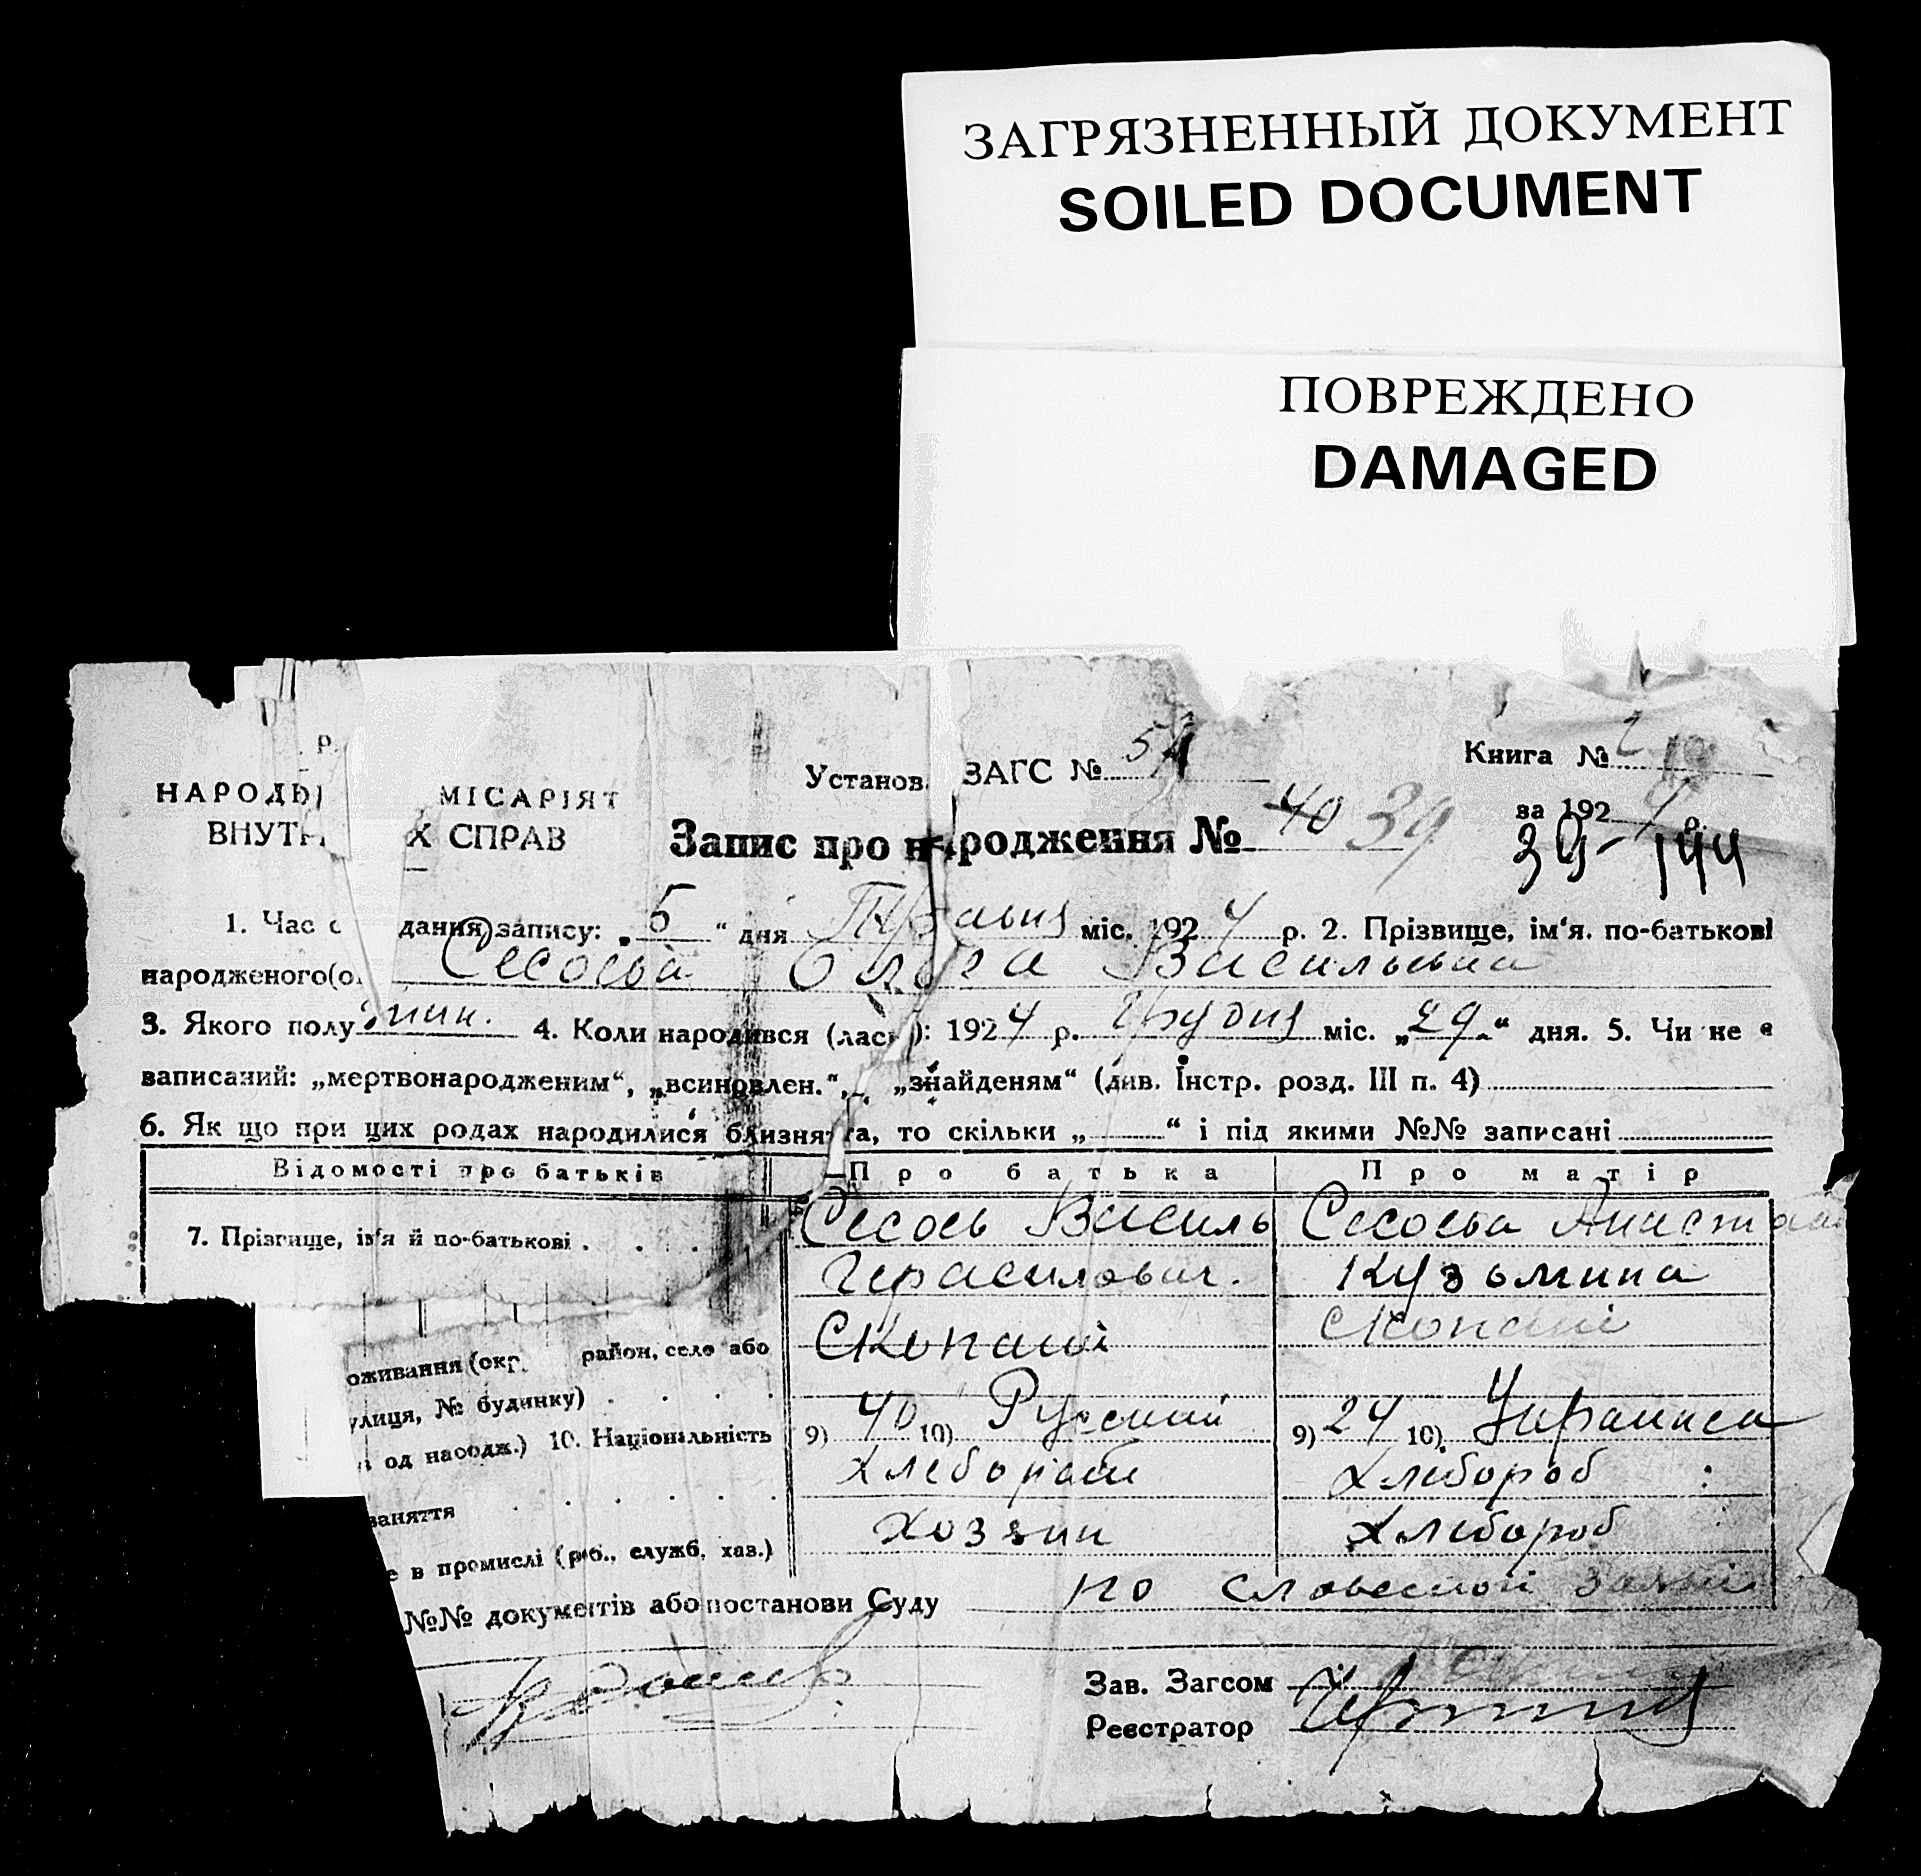 ЗАГРЯЗНЕННЫЙ ДОКУМЕНТ
SOILED DOCUMENT
ПОВРЕЖДЕНО
DAMAGED
Установ. ЗАГС №
Книга №
НАРОДН МІСАРІЯТ
ВНУТР Х СПРАВ
за 192 р.
Запис про народження № 40 39
39-144
1. Час с дання запису: „ 5 " дня Травня міс. 1924 р. 2. Прізвище, ім'я, по-батькові
народженого(о Сесоєва Ольга Васильевна
3. Якого полу жін. 4. Коли народився (лась): 1924 р. Грудня міс. „29" дня. 5. Чи не є
записаний: „мертвонародженим", „всиновлен.", „знайденям" (див. Інстр. розд. III п. 4)
6. Як що при цих родах народилися близнята, то скільки „ " і під якими №№ записані
Відомості про батьків Про батька Про матір
7. Прізвище, ім'я й по-батькові Сесоєв Василь Сесоєва Анастас
Герасимович. Кузьмина
Скопані Скопані
оживання (окр. район, село або
улиця, № будинку)
од народж.) 10. Національність 9) 40 10) Руский 9) 24 10) Украинка
Хлібороб
заняття
Хозяин Хлібороб
е в промислі (роб., служб, хаз.)
№№ документів або постанови Суду по словесной заяві
Зав. Загсом
Реєстратор